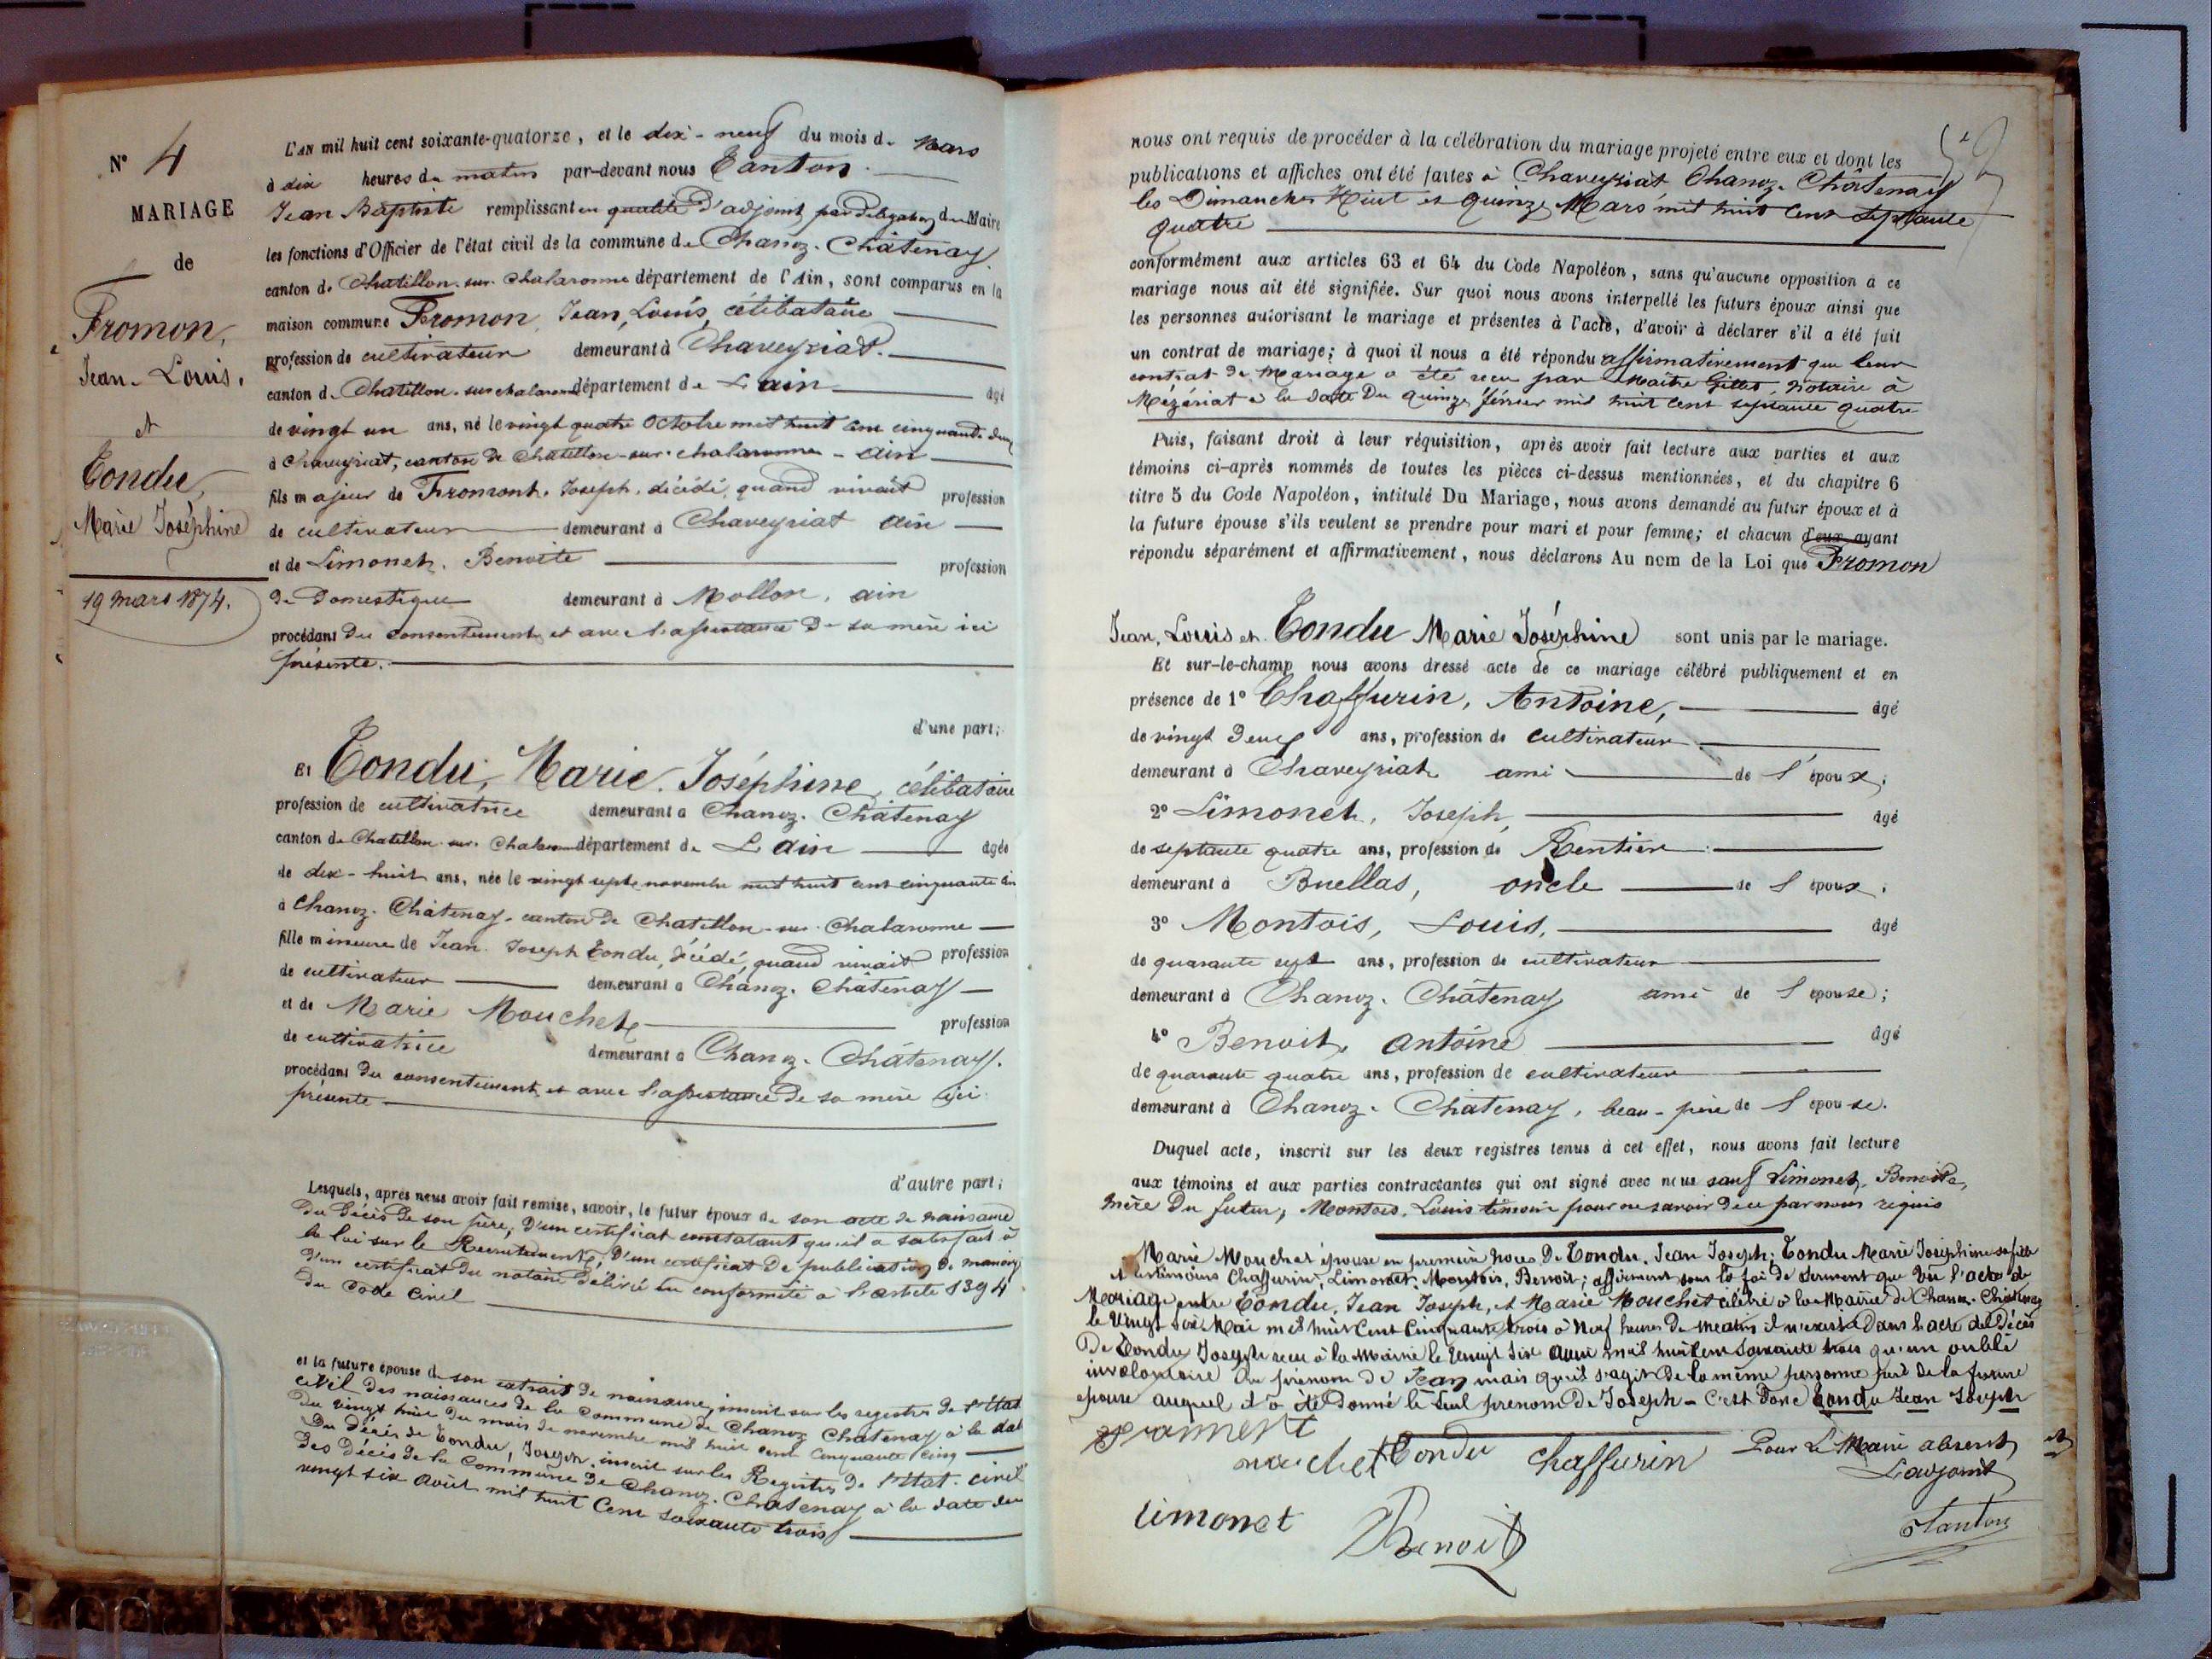 N° 4
MARIAGE
de
Fromon,
Jean-Louis.
et
Tondu,
Marie Joséphine
19 mars 1874.
L'AN mil huit cent soixante-quatorze, et le dix-neuf du mois de Mars
à dix heures du matin par-devant nous Tanton
Jean Baptiste remplissant en qualité d'adjoint par délégation du Maire
les fonctions d'Officier de l'état civil de la commune de Chanoz-Châtenay
canton de Chatillon-sur-Chalaronne département de l'Ain, sont comparus en la
maison commune Fromon Jean, Louis, célibataire
profession de cultivateur demeurant à Chaveyriat.
canton de Chatillon-sur chalaronne département de L'ain âgé
de vingt un ans, né le vingt quatre Octobre mil huit cent cinquante deux
à Chaveyriat, canton de Chatillon-sur-chalaronne - ain
fils majeur de Fromont, Joseph, décédé, quand vivait profession
de cultivateur demeurant à Chaveyriat ain
et de Limonet, Benoite profession
de Domestique demeurant à Mollon, ain
procédant du consentement et avec l'assistance de sa mère ici
présente.
d'une part;
Et Tondu, Marie Joséphine, célibataire
profession de cultivatrice demeurant à Chanoz-Châtenay
canton de Chatillon-sur-Chalaronne département de L'ain âgée
de dix-huit ans, née le vingt sept novembre mil huit cent cinquante cinq
à Chanoz-Châtenay-canton de Chatillon-sur-Chalaronne
fille mineure de Jean Joseph Tondu, décédé, quand vivait profession
de cultivateur demeurant à Chanoz-Châtenay
et de Marie Mouchet profession
de cultivatrice demeurant à Chanoz-Châtenay.
procédant du consentement et avec l'assistance de sa mère ici
présente
d'autre part;
Lesquels, après nous avoir fait remise, savoir, le futur époux de son acte de naissance
du décès de son père; d'un certificat constatant qu'il a satisfait à
la loi sur le Recrutement; d'un certificat de publication de mariage
d'un certificat du notaire délivré en conformité à l'article 1394
du Code Civil
et la future épouse de son extrait de naissance, inscrit sur les registres de l'état
civil des naissances de la Commune de Chanoz Châtenay à la date
du vingt huit du mois de novembre mil huit cent cinquante cinq
du décès de Tondu, Joseph, inscrit sur les Registres de l'état civil
des décès de la Commune de Chanoz-Chatenay à la date du
vingt six août mil huit Cent soixante trois
nous ont requis de procéder à la célébration du mariage projeté entre eux et dont les
publications et affiches ont été faites à Chaveyriat Chanoz-Châtenay
les Dimanches Huit et Quinze Mars mil huit cent septante
quatre
conformément aux articles 63 et 64 du Code Napoléon, sans qu'aucune opposition à ce
mariage nous ait été signifiée. Sur quoi nous avons interpellé les futurs époux ainsi que
les personnes autorisant le mariage et présentes à l'acte, d'avoir à déclarer s'il a été fait
un contrat de mariage; à quoi il nous a été répondu affirmativement que leur
contrat de Mariage a été reçu par Maitre Gillet, notaire à
Mézériat à la date du quinze février mil huit cent septante quatre
Puis, faisant droit à leur réquisition, après avoir fait lecture aux parties et aux
témoins ci-après nommés de toutes les pièces ci-dessus mentionnées, et du chapitre 6
titre 5 du Code Napoléon, intitulé Du Mariage, nous avons demandé au futur époux et à
la future épouse s'ils veulent se prendre pour mari et pour femme; et chacun d'eux ayant
répondu séparément et affirmativement, nous déclarons Au nom de la Loi que Fromon
Jean, Louis et Tondu Marie Joséphine sont unis par le mariage.
Et sur-le-champ nous avons dressé acte de ce mariage célébré publiquement et en
présence de 1° Chaffurin, Antoine, âgé
de vingt deux ans, profession de cultivateur
demeurant à Chaveyriat ami de l'époux;
2° Limonet, Joseph, âgé
de septante quatre ans, profession de Rentier
demeurant à Buellas, oncle de l'époux;
3° Montois, Louis, âgé
de quarante sept ans, profession de cultivateur
demeurant à Chanoz-Châtenay ami de l'épouse;
4° Benoit, Antoine âgé
de quarante quatre ans, profession de cultivateur
demeurant à Chanoz-Châtenay, beau-père de l'épouse.
Duquel acte, inscrit sur les deux registres tenus à cet effet, nous avons fait lecture
aux témoins et aux parties contractantes qui ont signé avec nous sauf Limonet, Benoite,
mère du futur, Montois, Louis témoin pour ne savoir de ce par nous requis
Marie Mouchet épouse en première noces de Tondu, Jean Joseph; Tondu Marie Joséphine sa fille
et les témoins Chaffurin, Limonet, Montois, Benoit; affirment sous la foi de serment que vu l'acte de
Mariage entre Tondu, Jean Joseph, et Marie Mouchet célébré à la Mairie de Chanoz-Châtenay
le vingt six Mai mil huit Cent Cinquante trois à Neuf heures du matin il n'existe dans l'acte de décès
De Tondu Joseph reçu à la Mairie le vingt six août mil huit cent soixante trois qu'un oubli
involontaire du prénom de Jean mais qu'il s'agit de la même personne père de la future
épouse auquel il a été donné le seul prenom de Joseph - C'est donc Tondu Jean Joseph
mouchet Tondu chaffurin Pour Le Maire absent,
L'adjoint
limonet Benoit Tanton